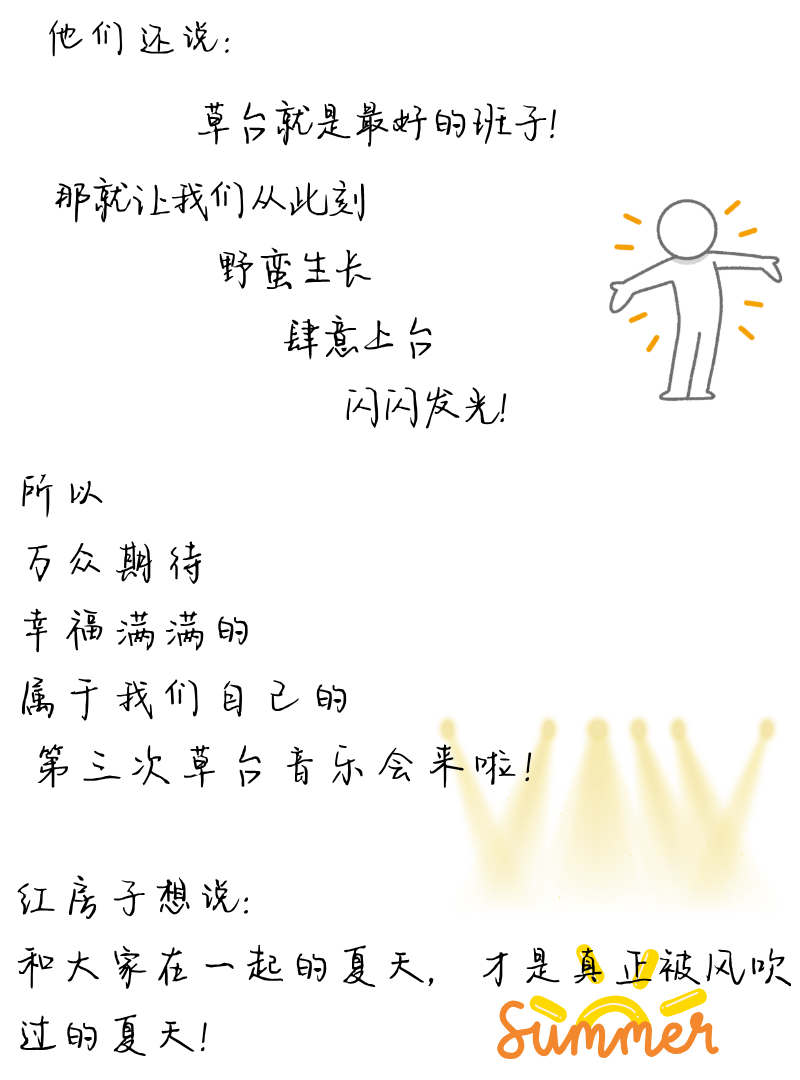 他们还说：
草台就是最好的班子！
那就让我们从此刻
野蛮生长
肆意上台
闪闪发光！
所以
万众期待
幸福满满的
属于我们自己的
第三次草台音乐会来啦！
红房子想说：
和大家在一起的夏天，才是真正被风吹
过的夏天！
Summer